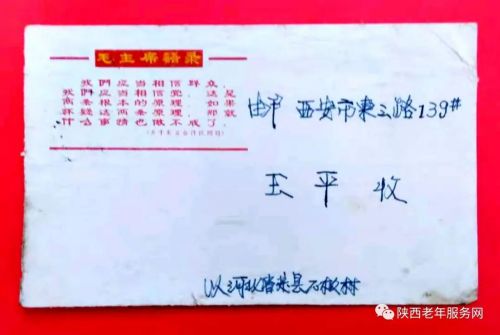 毛主席語录
我們应当相信群众，
我們应当相信党，这是
两条根本的原理。如果
怀疑这两条原理，那就
什么事情也做不成了。
西安市東三路139#
王平 收
河北省
陕西老年服务网